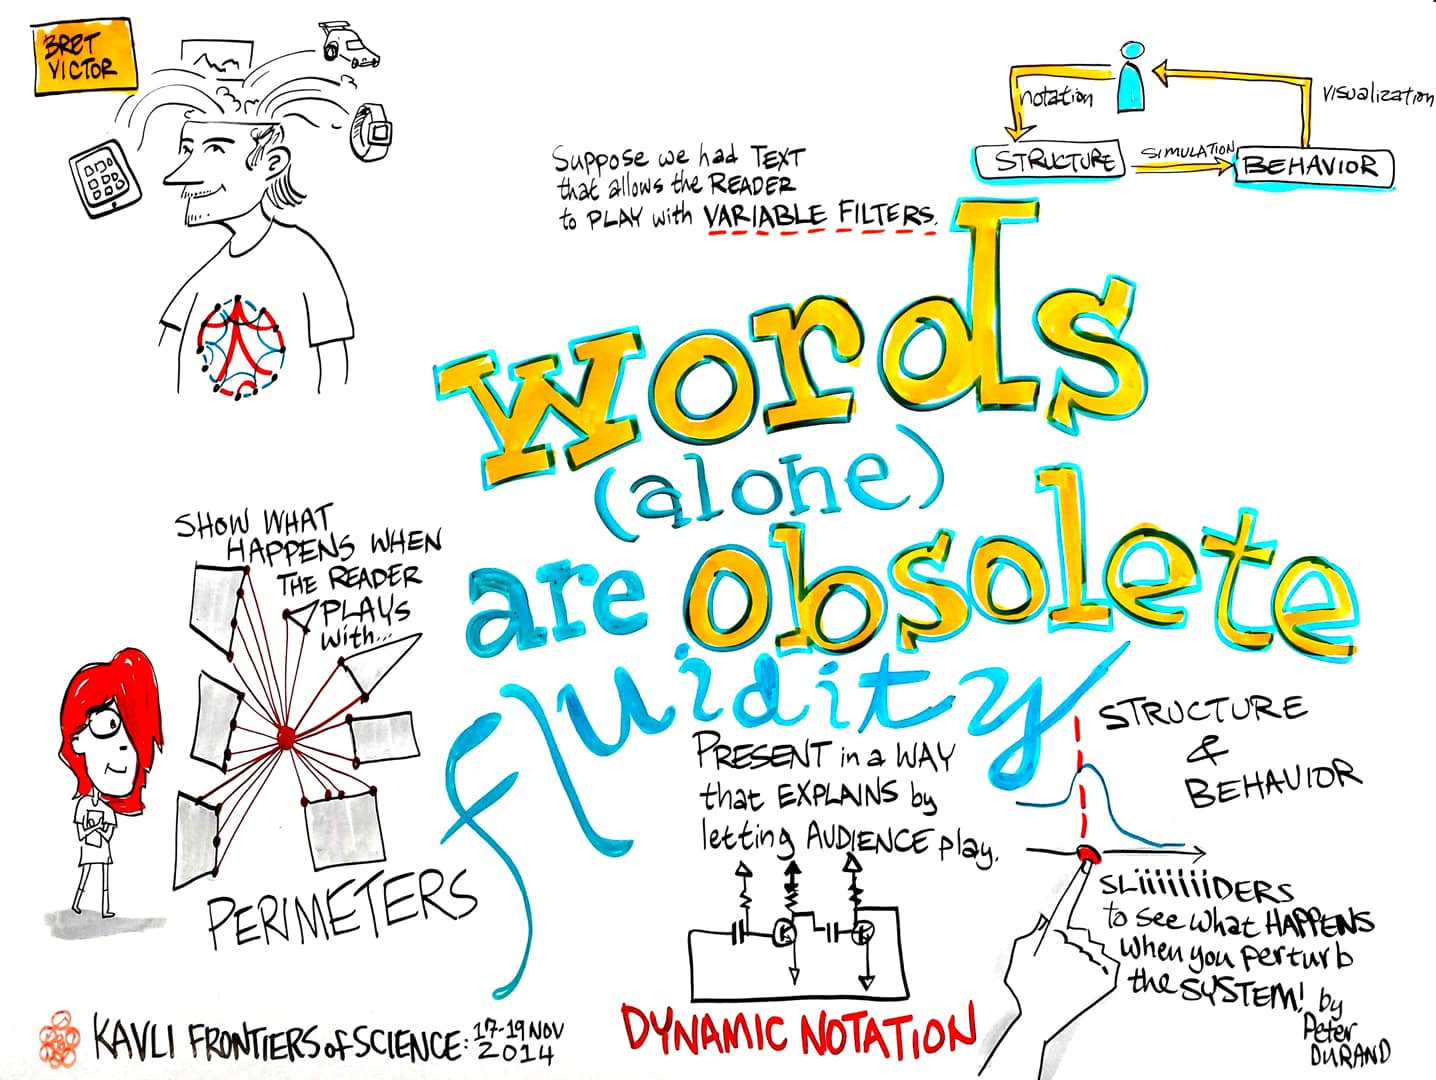 BRET
VICTOR
Suppose we had TEXT
that allows the READER
to PLAY with VARIABLE FILTERS.
notation
visualization
STRUCTURE
SIMULATION
BEHAVIOR
words
(alone)
are obsolete
fluidity
SHOW WHAT
HAPPENS WHEN
THE READER
PLAYS
with...
PERIMETERS
PRESENT in a WAY
that EXPLAINS by
letting AUDIENCE play.
DYNAMIC NOTATION
STRUCTURE
&
BEHAVIOR
SLiiiiiiiDERS
to see what HAPPENS
when you perturb
the SYSTEM!
by
Peter
DURAND
KAVLI FRONTIERS of SCIENCE: 17-19 NOV
2014